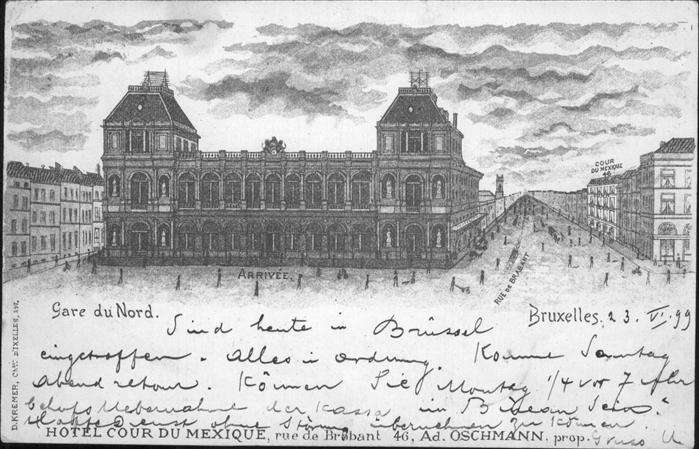 COUR
DU MEXIQUE
46
ARRIVÉE.
RUE DE BRABANT
Gare du Nord.
Bruxelles, 23. VI. 99
Sind heute in Brüssel
eingetroffen. Alles in Ordnung. Komme Sonntag
abend retour. Können Sie Montag 1/4 vor 7 Uhr
behufs Uebernahme der Kassa im Bureau sein?
Dienst ohne übernehmen zu können.
Gruss
HOTEL COUR DU MEXIQUE, rue de Brabant 46, Ad. OSCHMANN, prop.
D. KREMER, BRUXELLES,